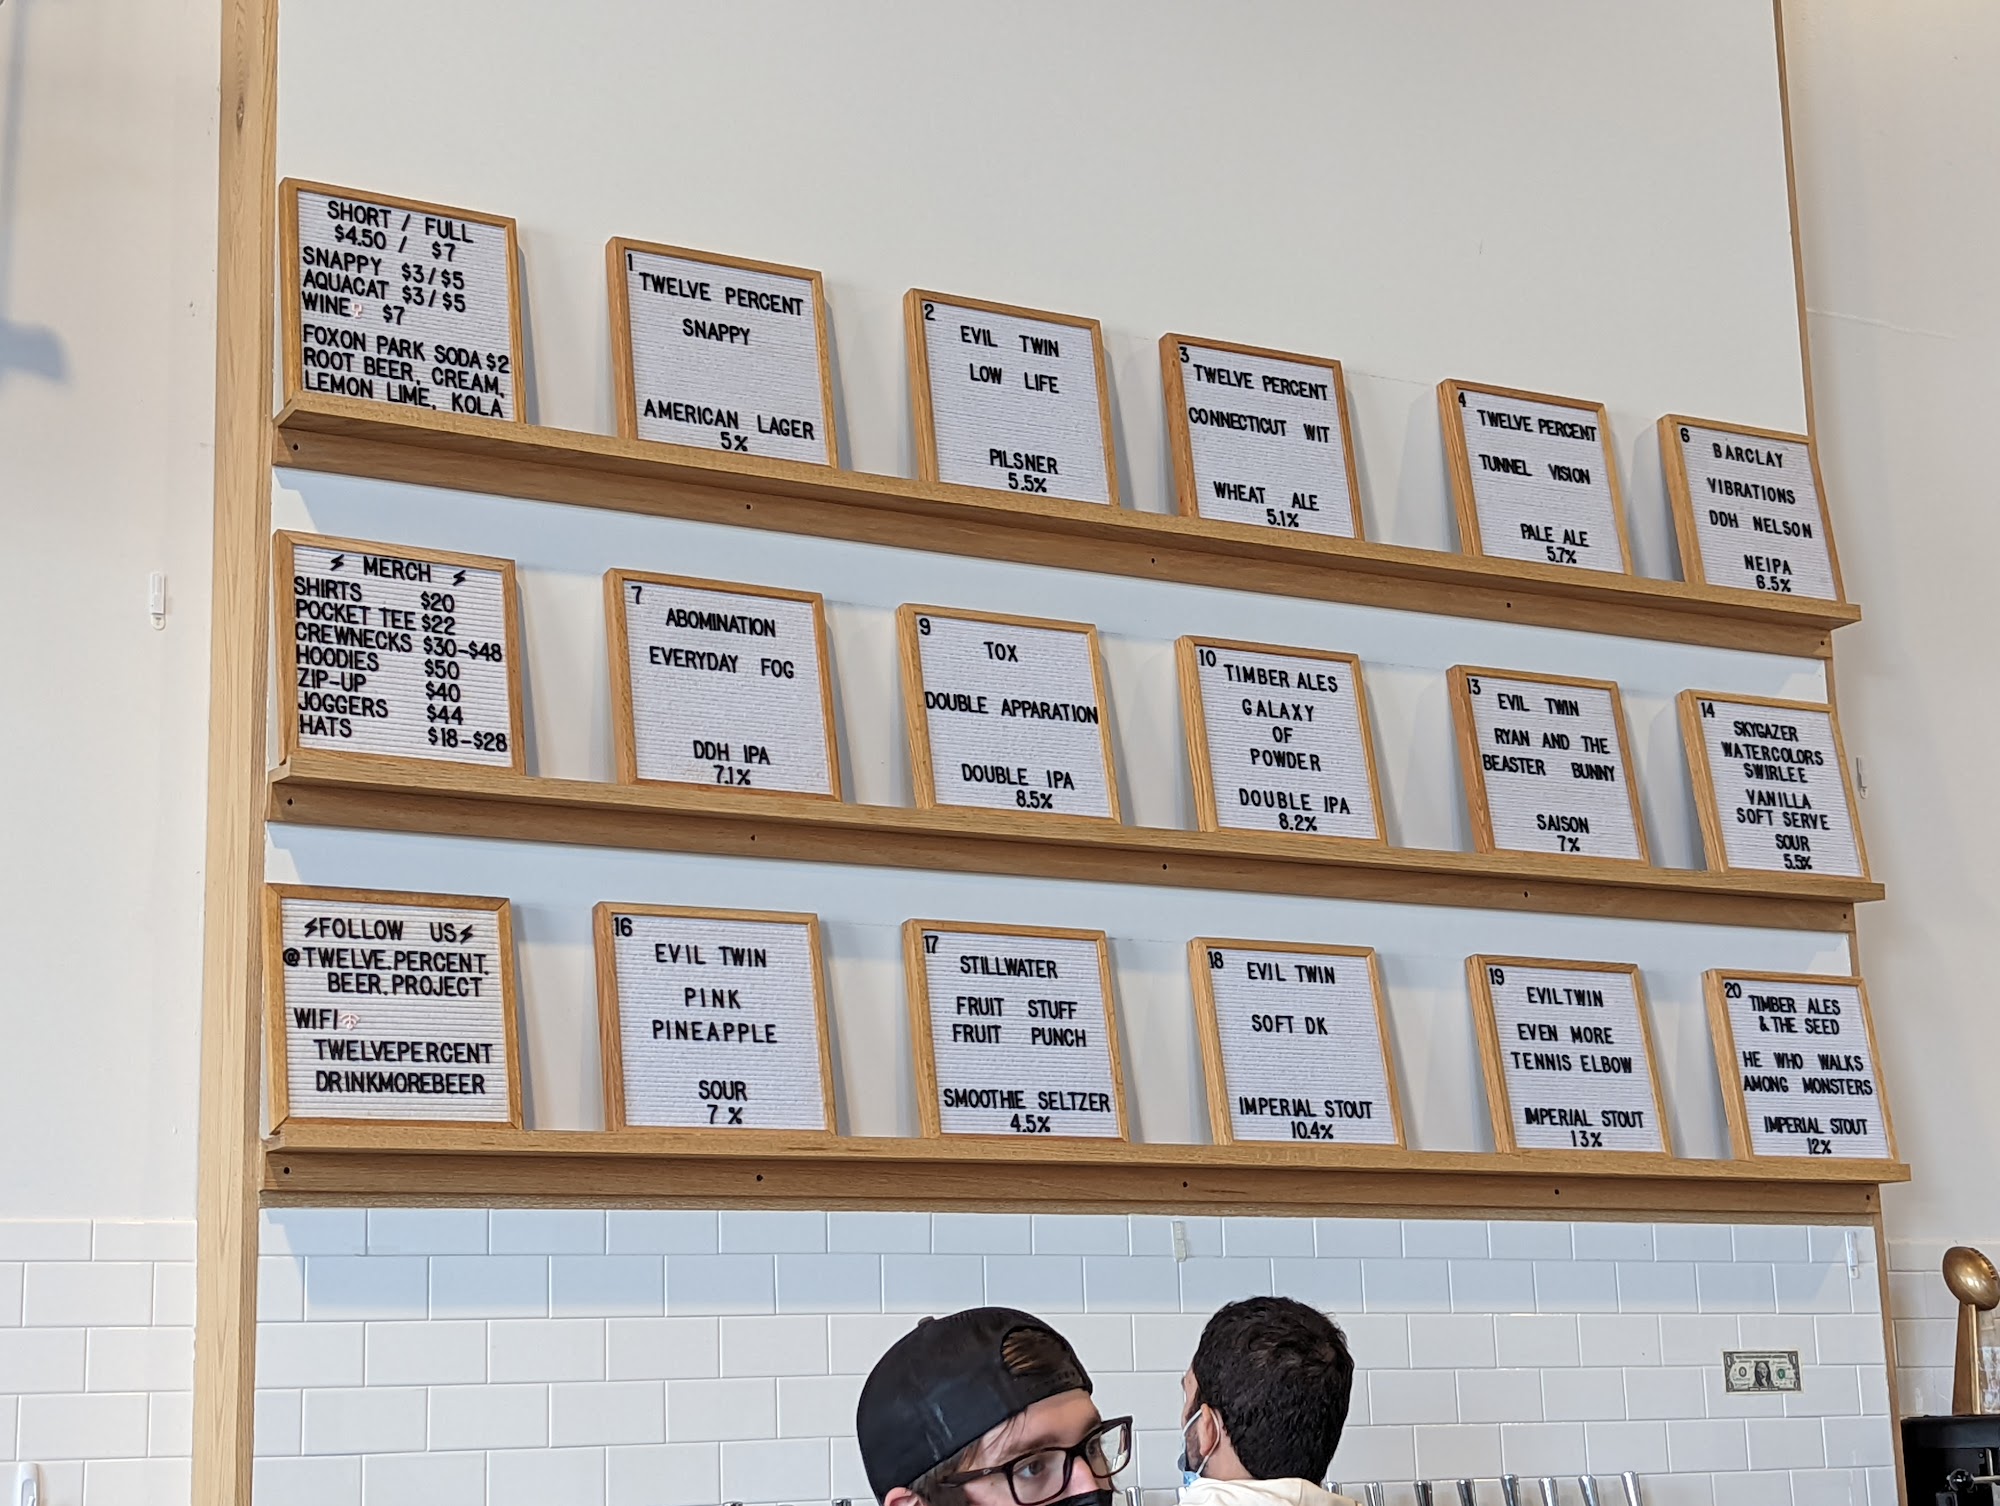 SHORT / FULL
$4.50 / $7
SNAPPY $3/$5
AQUACAT $3/$5
WINE $7
FOXON PARK SODA $2
ROOT BEER, CREAM,
LEMON LIME, KOLA
1
TWELVE PERCENT
SNAPPY
AMERICAN LAGER
5%
2
EVIL TWIN
LOW LIFE
PILSNER
5.5%
3
TWELVE PERCENT
CONNECTICUT WIT
WHEAT ALE
5.1%
4
TWELVE PERCENT
TUNNEL VISION
PALE ALE
5.7%
6
BARCLAY
VIBRATIONS
DDH NELSON
NEIPA
6.5%
MERCH
SHIRTS $20
POCKET TEE $22
CREWNECKS $30-$48
HOODIES $50
ZIP-UP $40
JOGGERS $44
HATS $18-$28
7
ABOMINATION
EVERYDAY FOG
DDH IPA
7.1%
9
TOX
DOUBLE APPARATION
DOUBLE IPA
8.5%
10
TIMBER ALES
GALAXY
OF
POWDER
DOUBLE IPA
8.2%
13
EVIL TWIN
RYAN AND THE
BEASTER BUNNY
SAISON
7%
14
SKYGAZER
WATERCOLORS
SWIRLEE
VANILLA
SOFT SERVE
SOUR
5.5%
FOLLOW US
@TWELVE.PERCENT.
BEER.PROJECT
WIFI
TWELVEPERCENT
DRINKMOREBEER
16
EVIL TWIN
PINK
PINEAPPLE
SOUR
7%
17
STILLWATER
FRUIT STUFF
FRUIT PUNCH
SMOOTHIE SELTZER
4.5%
18
EVIL TWIN
SOFT DK
IMPERIAL STOUT
10.4%
19
EVIL TWIN
EVEN MORE
TENNIS ELBOW
IMPERIAL STOUT
13%
20
TIMBER ALES
& THE SEED
HE WHO WALKS
AMONG MONSTERS
IMPERIAL STOUT
12%